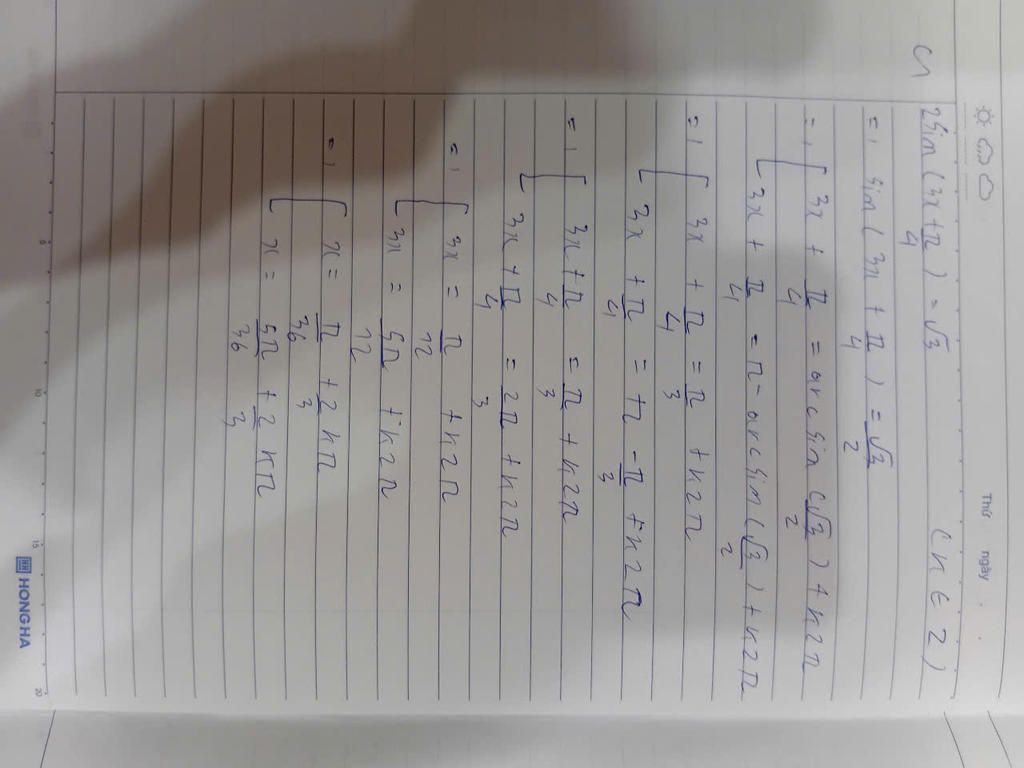 Thứ ngày . .
c) 2sin(3x + π/4) = √3 (k ∈ Z)
=> sin(3x + π/4) = √3/2
=> [ 3x + π/4 = arcsin(√3/2) + k2π
3x + π/4 = π - arcsin(√3/2) + k2π
=> [ 3x + π/4 = π/3 + k2π
3x + π/4 = π - π/3 + k2π
=> [ 3x + π/4 = π/3 + k2π
3x + π/4 = 2π/3 + k2π
=> [ 3x = π/12 + k2π
3x = 5π/12 + k2π
=> [ x = π/36 + 2/3 kπ
x = 5π/36 + 2/3 kπ
5 10 15 20
HONG HA